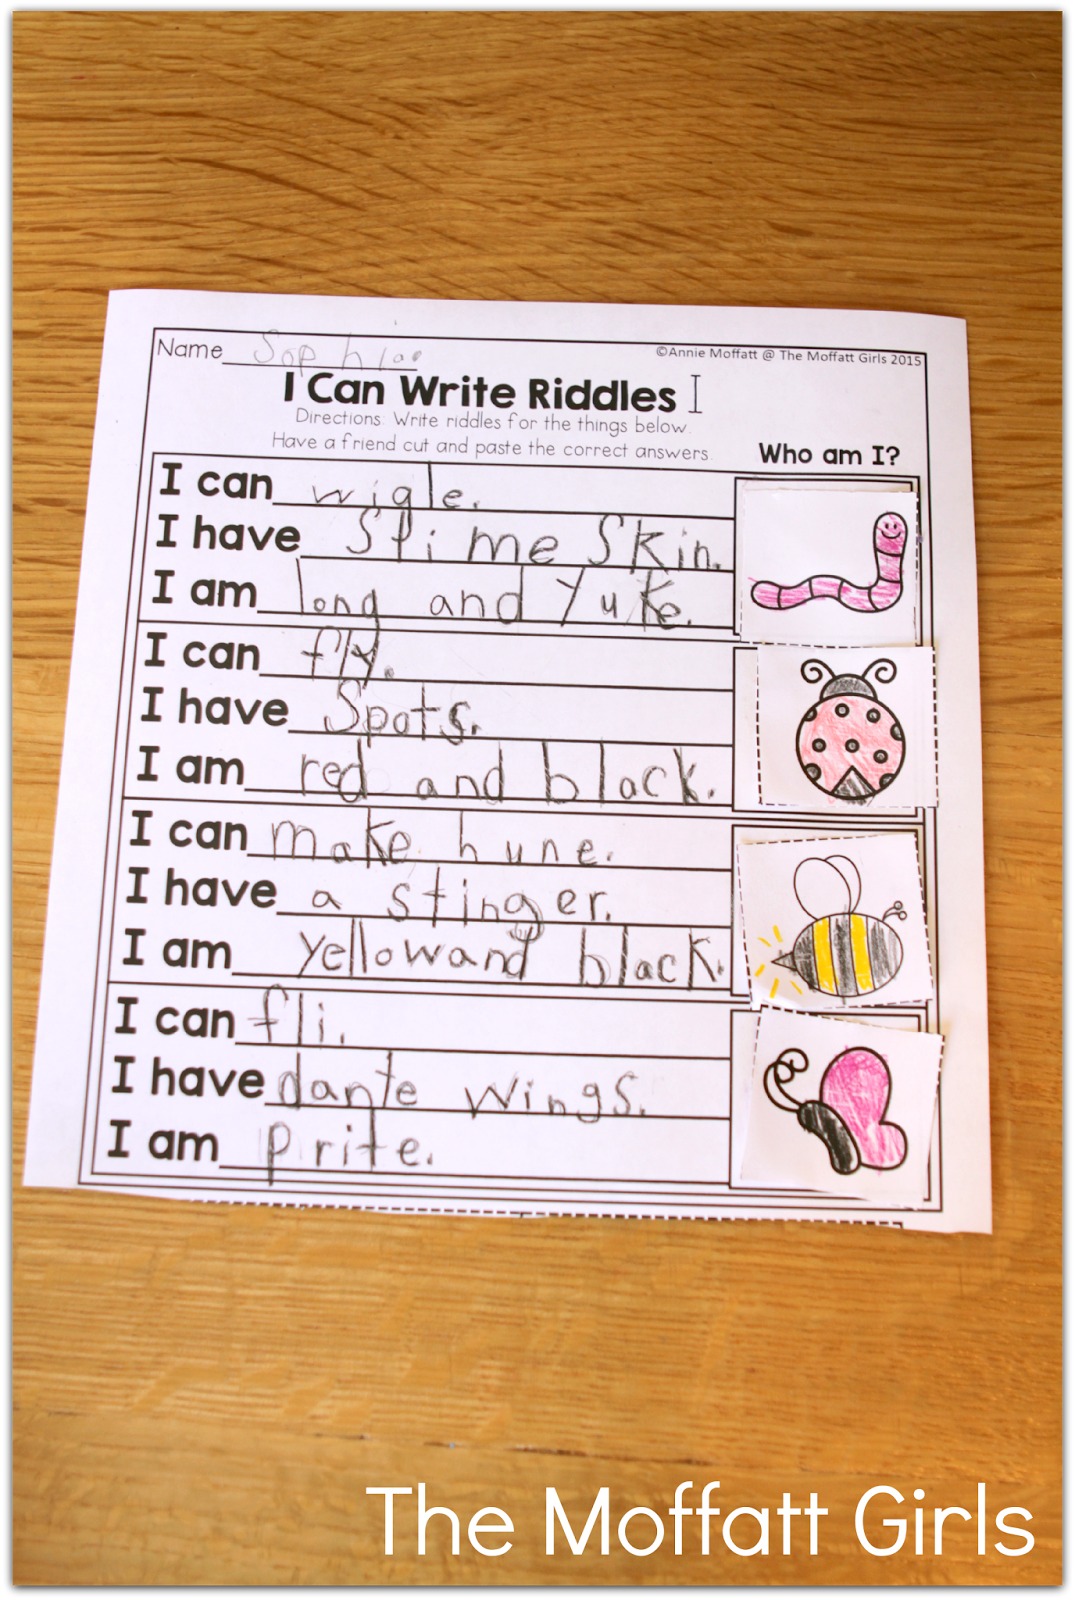 Name Sophia
©Annie Moffatt @ The Moffatt Girls 2015
I Can Write Riddles I
Directions: Write riddles for the things below.
Have a friend cut and paste the correct answers.
Who am I?
I can wigle.
I have Slime Skin.
I am long and Yuke.
I can fly.
I have Spots.
I am red and black.
I can make hune.
I have a stinger.
I am yellow and black.
I can fli.
I have dante wings.
I am prite.
The Moffatt Girls